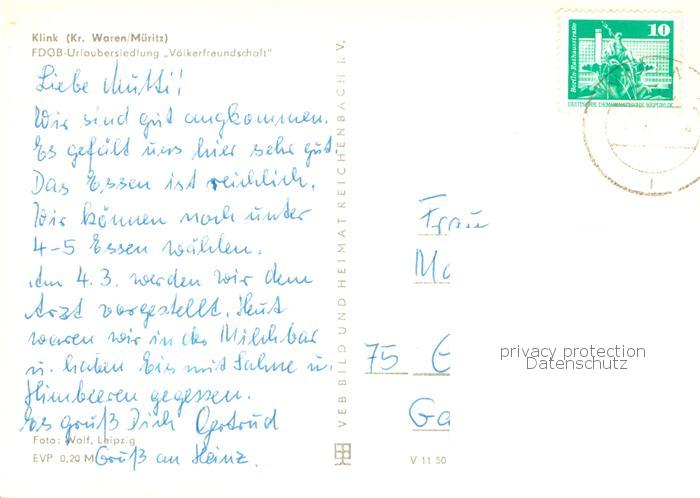 Klink (Kr. Waren/Müritz)
FDGB-Urlaubersiedlung „Völkerfreundschaft"
Liebe Mutti!
Wir sind gut angkommen.
Es gefält uns hier sehr gut.
Das Essen ist reichlich.
Wir können noch unter
4-5 Essen wählen.
Am 4.3. werden wir dem
Arzt vorgestellt. Heut
waren wir in der Milchbar
u. haben Eis mit Sahne u.
Himbeeren gegessen.
Es grüß Dich Gertrud
Foto: Wolf, Leipzig
EVP 0,20 M Gruß an Heinz.
VEB BILD UND HEIMAT REICHENBACH I. V.
V 11 50
10
Berlin-Rathausstraße
DEUTSCHE DEMOKRATISCHE REPUBLIK
Frau
75
privacy protection
Datenschutz